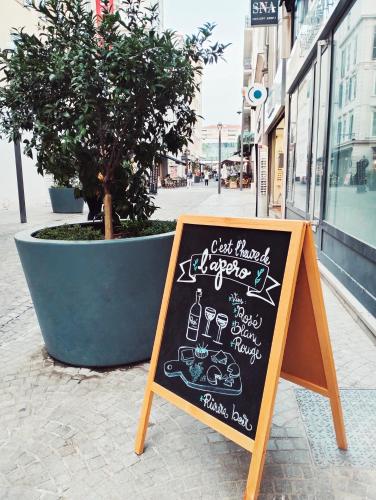 SNA
C'est l'heure de
l'apero
Vins:
Rosé
Blanc
Rouge